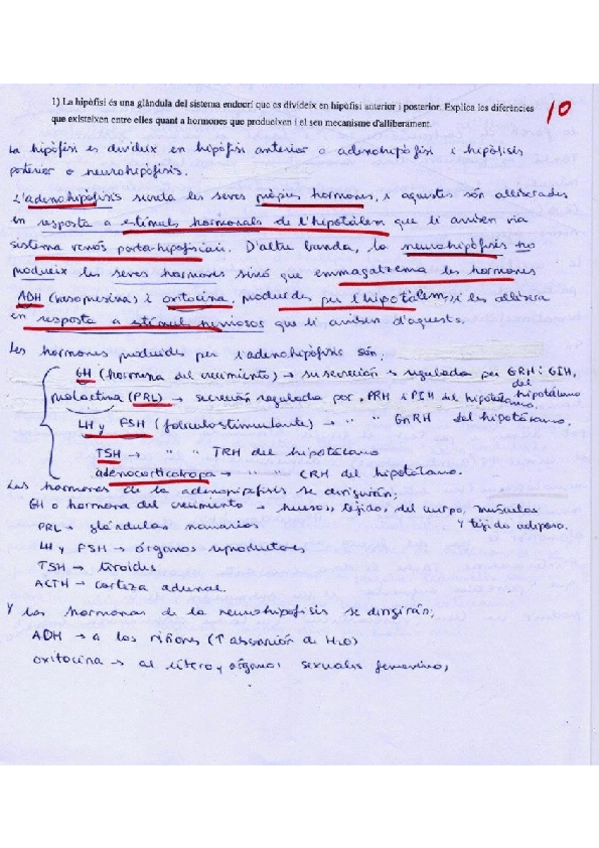 1) La hipòfisi és una glàndula del sistema endocrí que es divideix en hipòfisi anterior i posterior. Explica les diferències
que existeixen entre elles quant a hormones que produeixen i el seu mecanisme d'alliberament.
10
La hipòfisi es divideix en hipòfisi anterior o adenohipòfisi i hipòfisis
posterior o neurohipòfisis.
L'adenohipòfisis secreta les seves pròpies hormones, i aquestes són alliberades
en resposta a estímuls hormonals de l'hipotàlem que li arriben via
sistema venós porta-hipofisiari. D'altra banda, la neurohipòfisis no
produeix les seves hormones sinó que emmagatzema les hormones
ADH (vasopressina) i oxitocina, produïdes per l'hipotàlem, i les allibera
en resposta a estímuls nerviosos que li arriben d'aquests.
Les hormones produïdes per l'adenohipòfisis són:
GH (hormona del crecimiento) → su secreción es regulada por GRH i GIH, del hipotálamo
prolactina (PRL) → secreción regulada por PRH i PIH del hipotálamo
LH y FSH (foliculostimulante) → " " GnRH del hipotálamo.
TSH → " " TRH del hipotálamo
adenocorticotropa → " " CRH del hipotálamo.
Las hormonas de la adenohipófisis se dirigirán:
GH o hormona del crecimiento → huesos, tejidos del cuerpo, músculos
y tejido adiposo.
PRL → glándulas mamarias
LH y FSH → órganos reproductores
TSH → tiroides
ACTH → corteza adrenal
Y las hormonas de la neurohipofisis se dirigirán:
ADH → a los riñones (↑ absorción de H2O)
oxitocina → al útero y órganos sexuales femeninos,